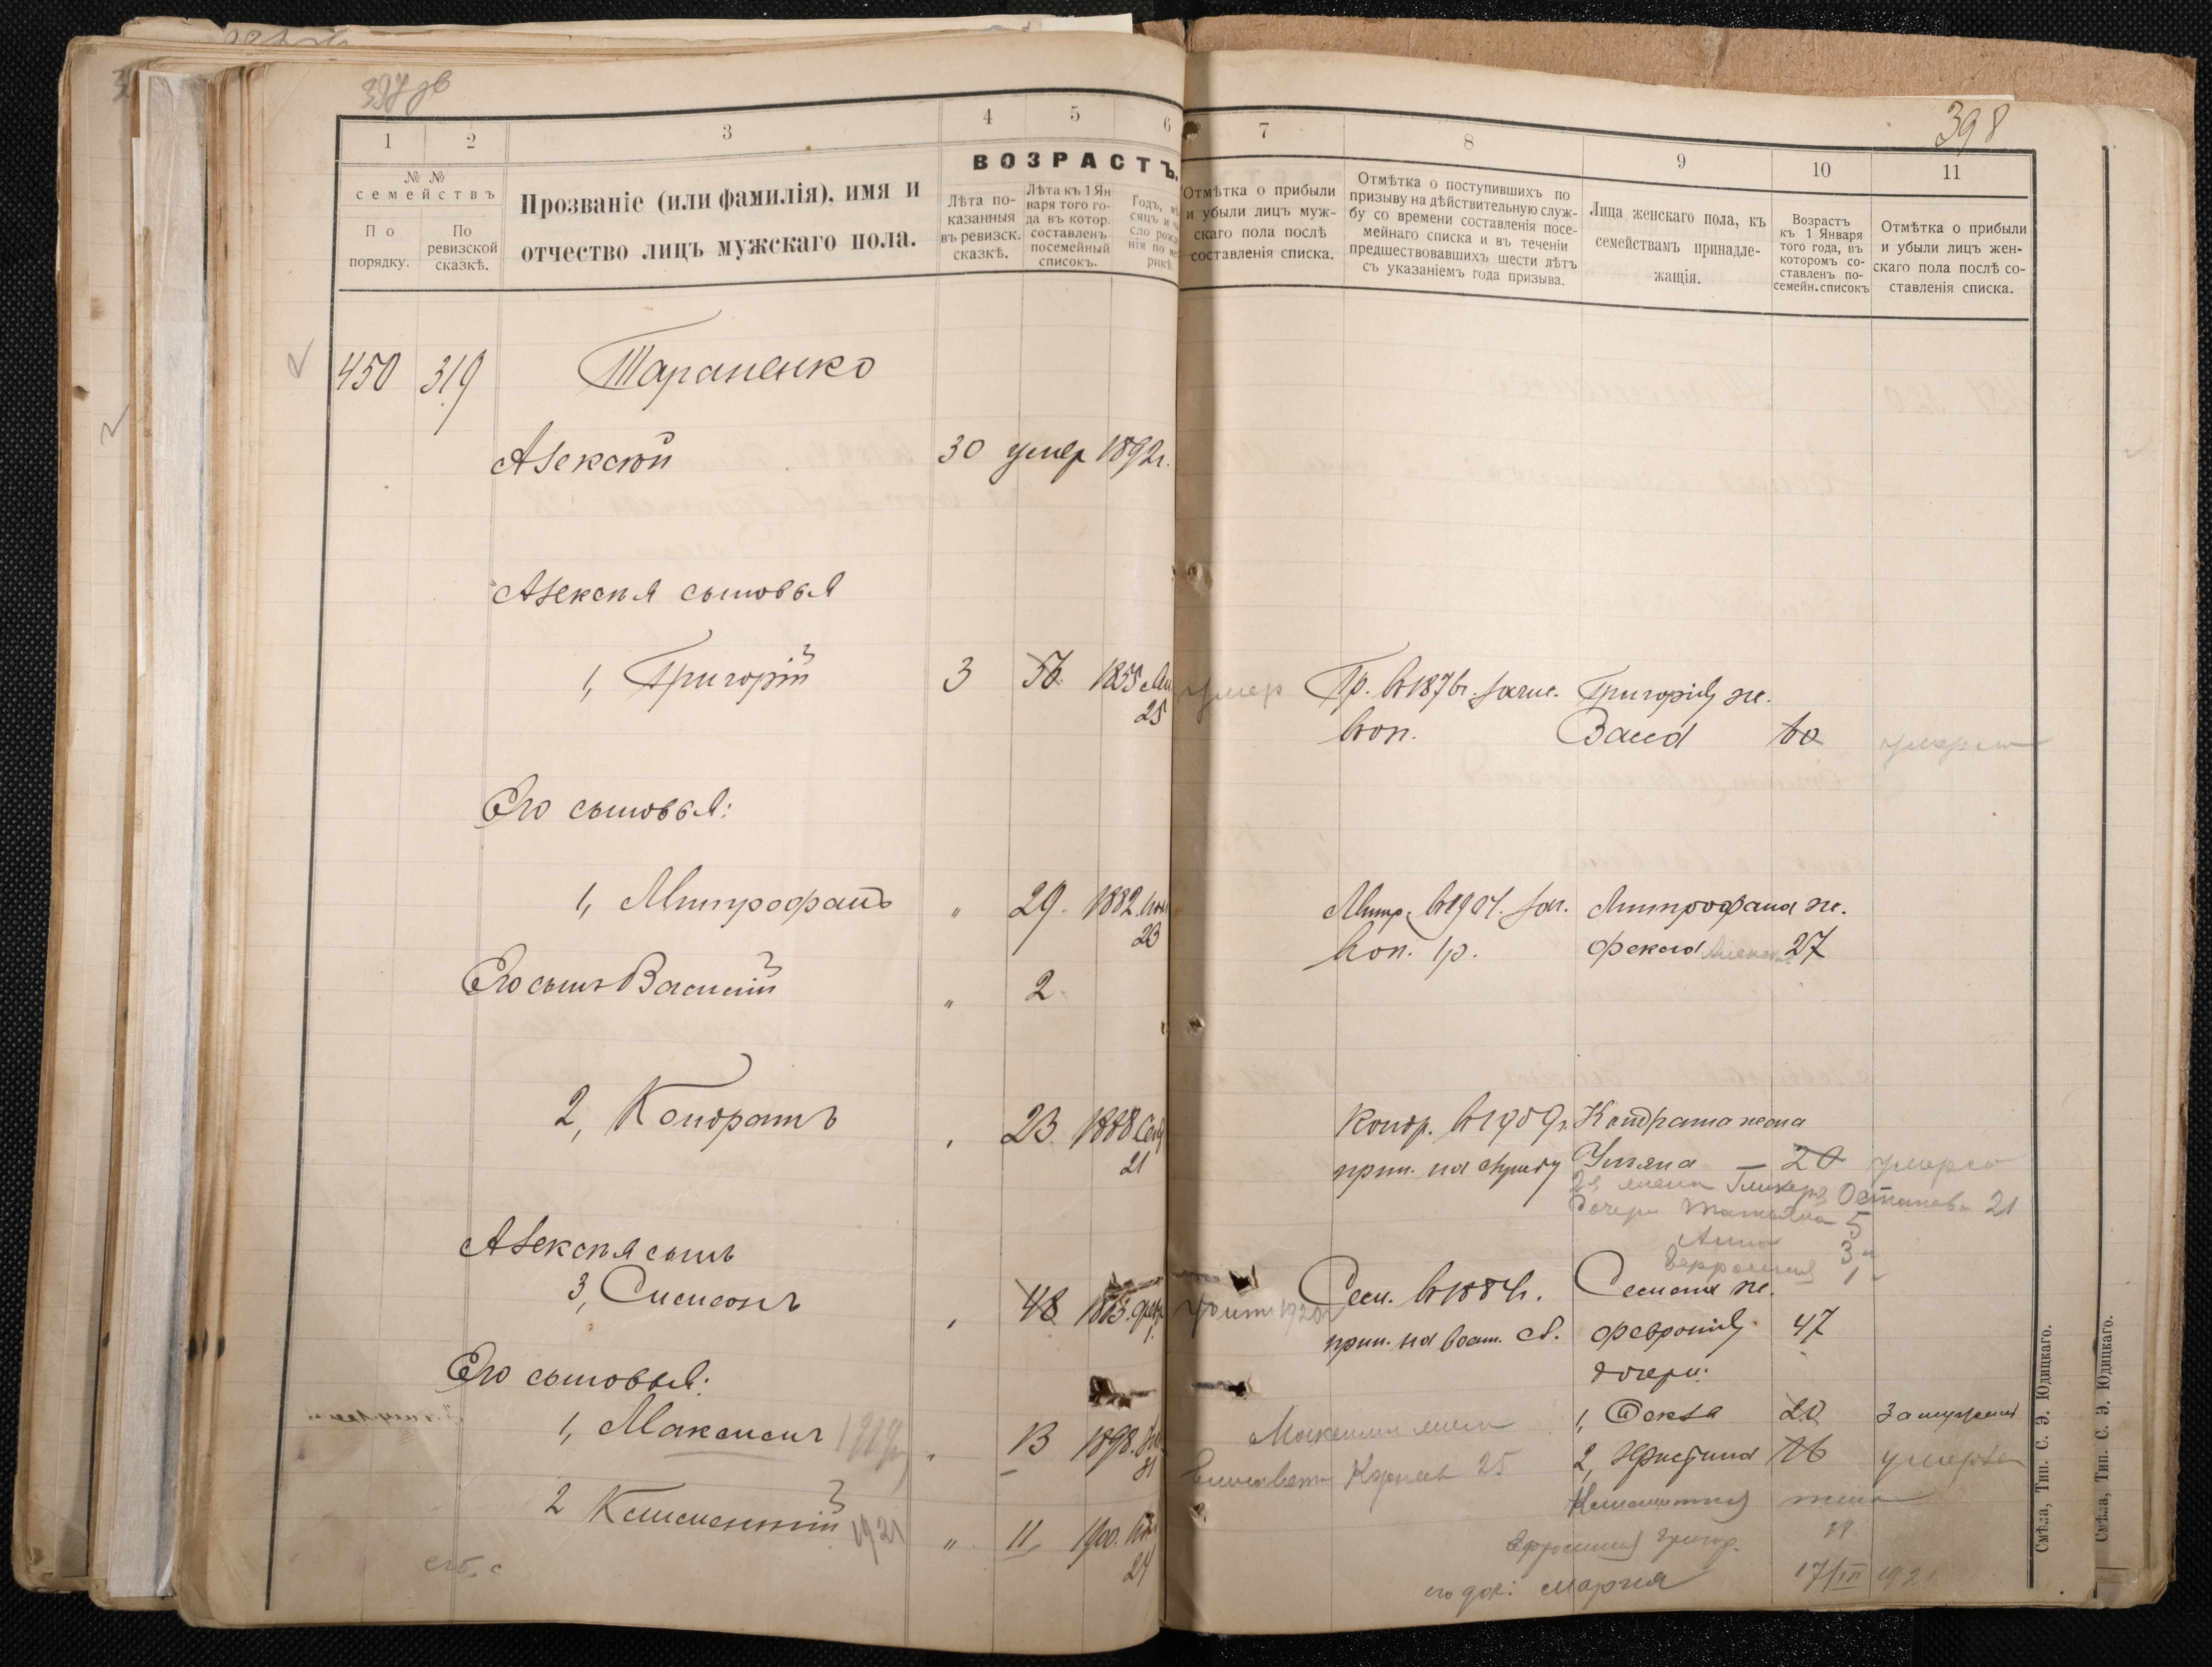 397 об
398
1 2 3 4 5 6
7 8 9 10 11
№ №
семействъ
По порядку.
По ревизской сказкѣ.
Прозваніе (или фамилія), имя и
отчество лицъ мужскаго пола.
ВОЗРАСТЪ.
Лѣта по-
казанныя
въ ревизск.
сказкѣ.
Лѣта къ 1 Ян
варя того го-
да въ котор.
составленъ
посемейный
списокъ.
Отмѣтка о прибыли
и убыли лицъ муж-
скаго пола послѣ
составленія списка.
Отмѣтка о поступившихъ по
призыву на дѣйствительную служ-
бу со времени составленія посе-
мейнаго списка и въ теченіи
предшествовавшихъ шести лѣтъ
съ указаніемъ года призыва.
Лица женскаго пола, къ
семействамъ принадле-
жащія.
Возрастъ
къ 1 Января
того года, въ
которомъ со-
ставленъ по-
семейн. списокъ
Отмѣтка о прибыли
и убыли лицъ жен-
скаго пола послѣ со-
ставленія списка.
450 319 Тараненко
Алексѣй 30 умер 1892 г.
Алексѣя сыновья
1, Григорій 3 56 1855 умер Гр. в 187 г. зачис. Григорія ж.
25 Васса 60 умерла
Его сыновья:
1, Митрофанъ " 29 1882 Митр. в 1904. Митрофана ж.
23 Фекла 27
Его сынъ Василій " 2
2, Кондратъ 23 1888 Сен Кондр. в 1909 г. Кондрата жена
21 прин. на службу Ульяна — 20 умерла
2я жена Гликерія Остапова 21
Дочери Татьяна 5
Анна 3
1
Алексѣя сынъ
3, Симеонъ 48 1863 февр Сем. в 1884 г. Семена ж.
1 прин. на воен. сл. Февронія 47
Его сыновья: дочери:
1, Максимъ 1919 " 13 1898 Максима жена 1, Фекла 20 замужем
31 Елисавета Карпов 25 2, Христина 16 умерла
Климентія жена
2 Климентій 1921 " 11 1900 Ефросинія Григор. 18
24 его доч: Мария 17/III 192
Смѣла, Тип. С. Э. Юдицкаго.
Смѣла, Тип. С. Э. Юдицкаго.